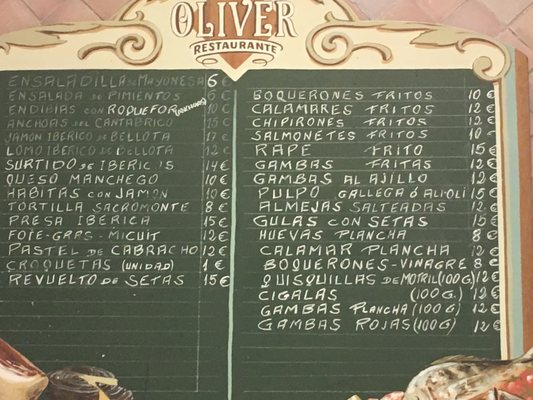 OLIVER
RESTAURANTE
ENSALADILLA DE MAYONESA 6 €
ENSALADA DE PIMIENTOS 6 €
ENDIBIAS CON ROQUEFOR (ANCHOAS) 10 €
ANCHOAS DEL CANTABRICO 15 €
JAMON IBERICO DE BELLOTA 17 €
LOMO IBERICO DE BELLOTA 12 €
SURTIDO DE IBERICOS 14 €
QUESO MANCHEGO 10 €
HABITAS CON JAMON 10 €
TORTILLA SACROMONTE 8 €
PRESA IBERICA 15 €
FOIE-GRAS-MICUIT 12 €
PASTEL DE CABRACHO 12 €
CROQUETAS (UNIDAD) 1 €
REVUELTO DE SETAS 15 €
BOQUERONES FRITOS 10 €
CALAMARES FRITOS 12 €
CHIPIRONES FRITOS 12 €
SALMONETES FRITOS 10
RAPE FRITO 15 €
GAMBAS FRITAS 12 €
GAMBAS AL AJILLO 12 €
PULPO GALLEGA Ó ALIOLI 15 €
ALMEJAS SALTEADAS 12 €
GULAS CON SETAS 15 €
HUEVAS PLANCHA 8 €
CALAMAR PLANCHA 12 €
BOQUERONES-VINAGRE 8 €
QUISQUILLAS DE MOTRIL (100G) 12 €
CIGALAS (100G.) 12 €
GAMBAS PLANCHA (100G) 12 €
GAMBAS ROJAS (100G) 12 €